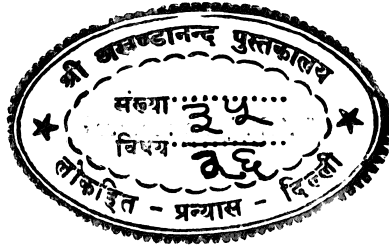 श्री अखण्डानन्द पुस्तकालय
संख्या ३५
विषय २६
लोकहित - प्रन्यास - दिल्ली